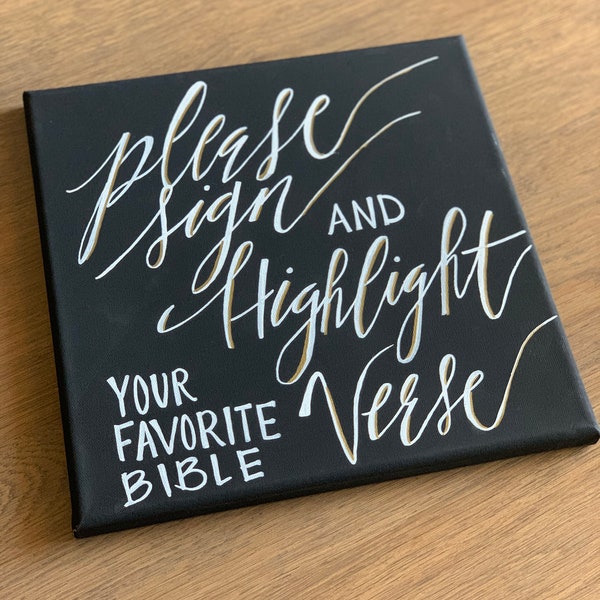 please
sign AND
Highlight
YOUR
FAVORITE
BIBLE Verse